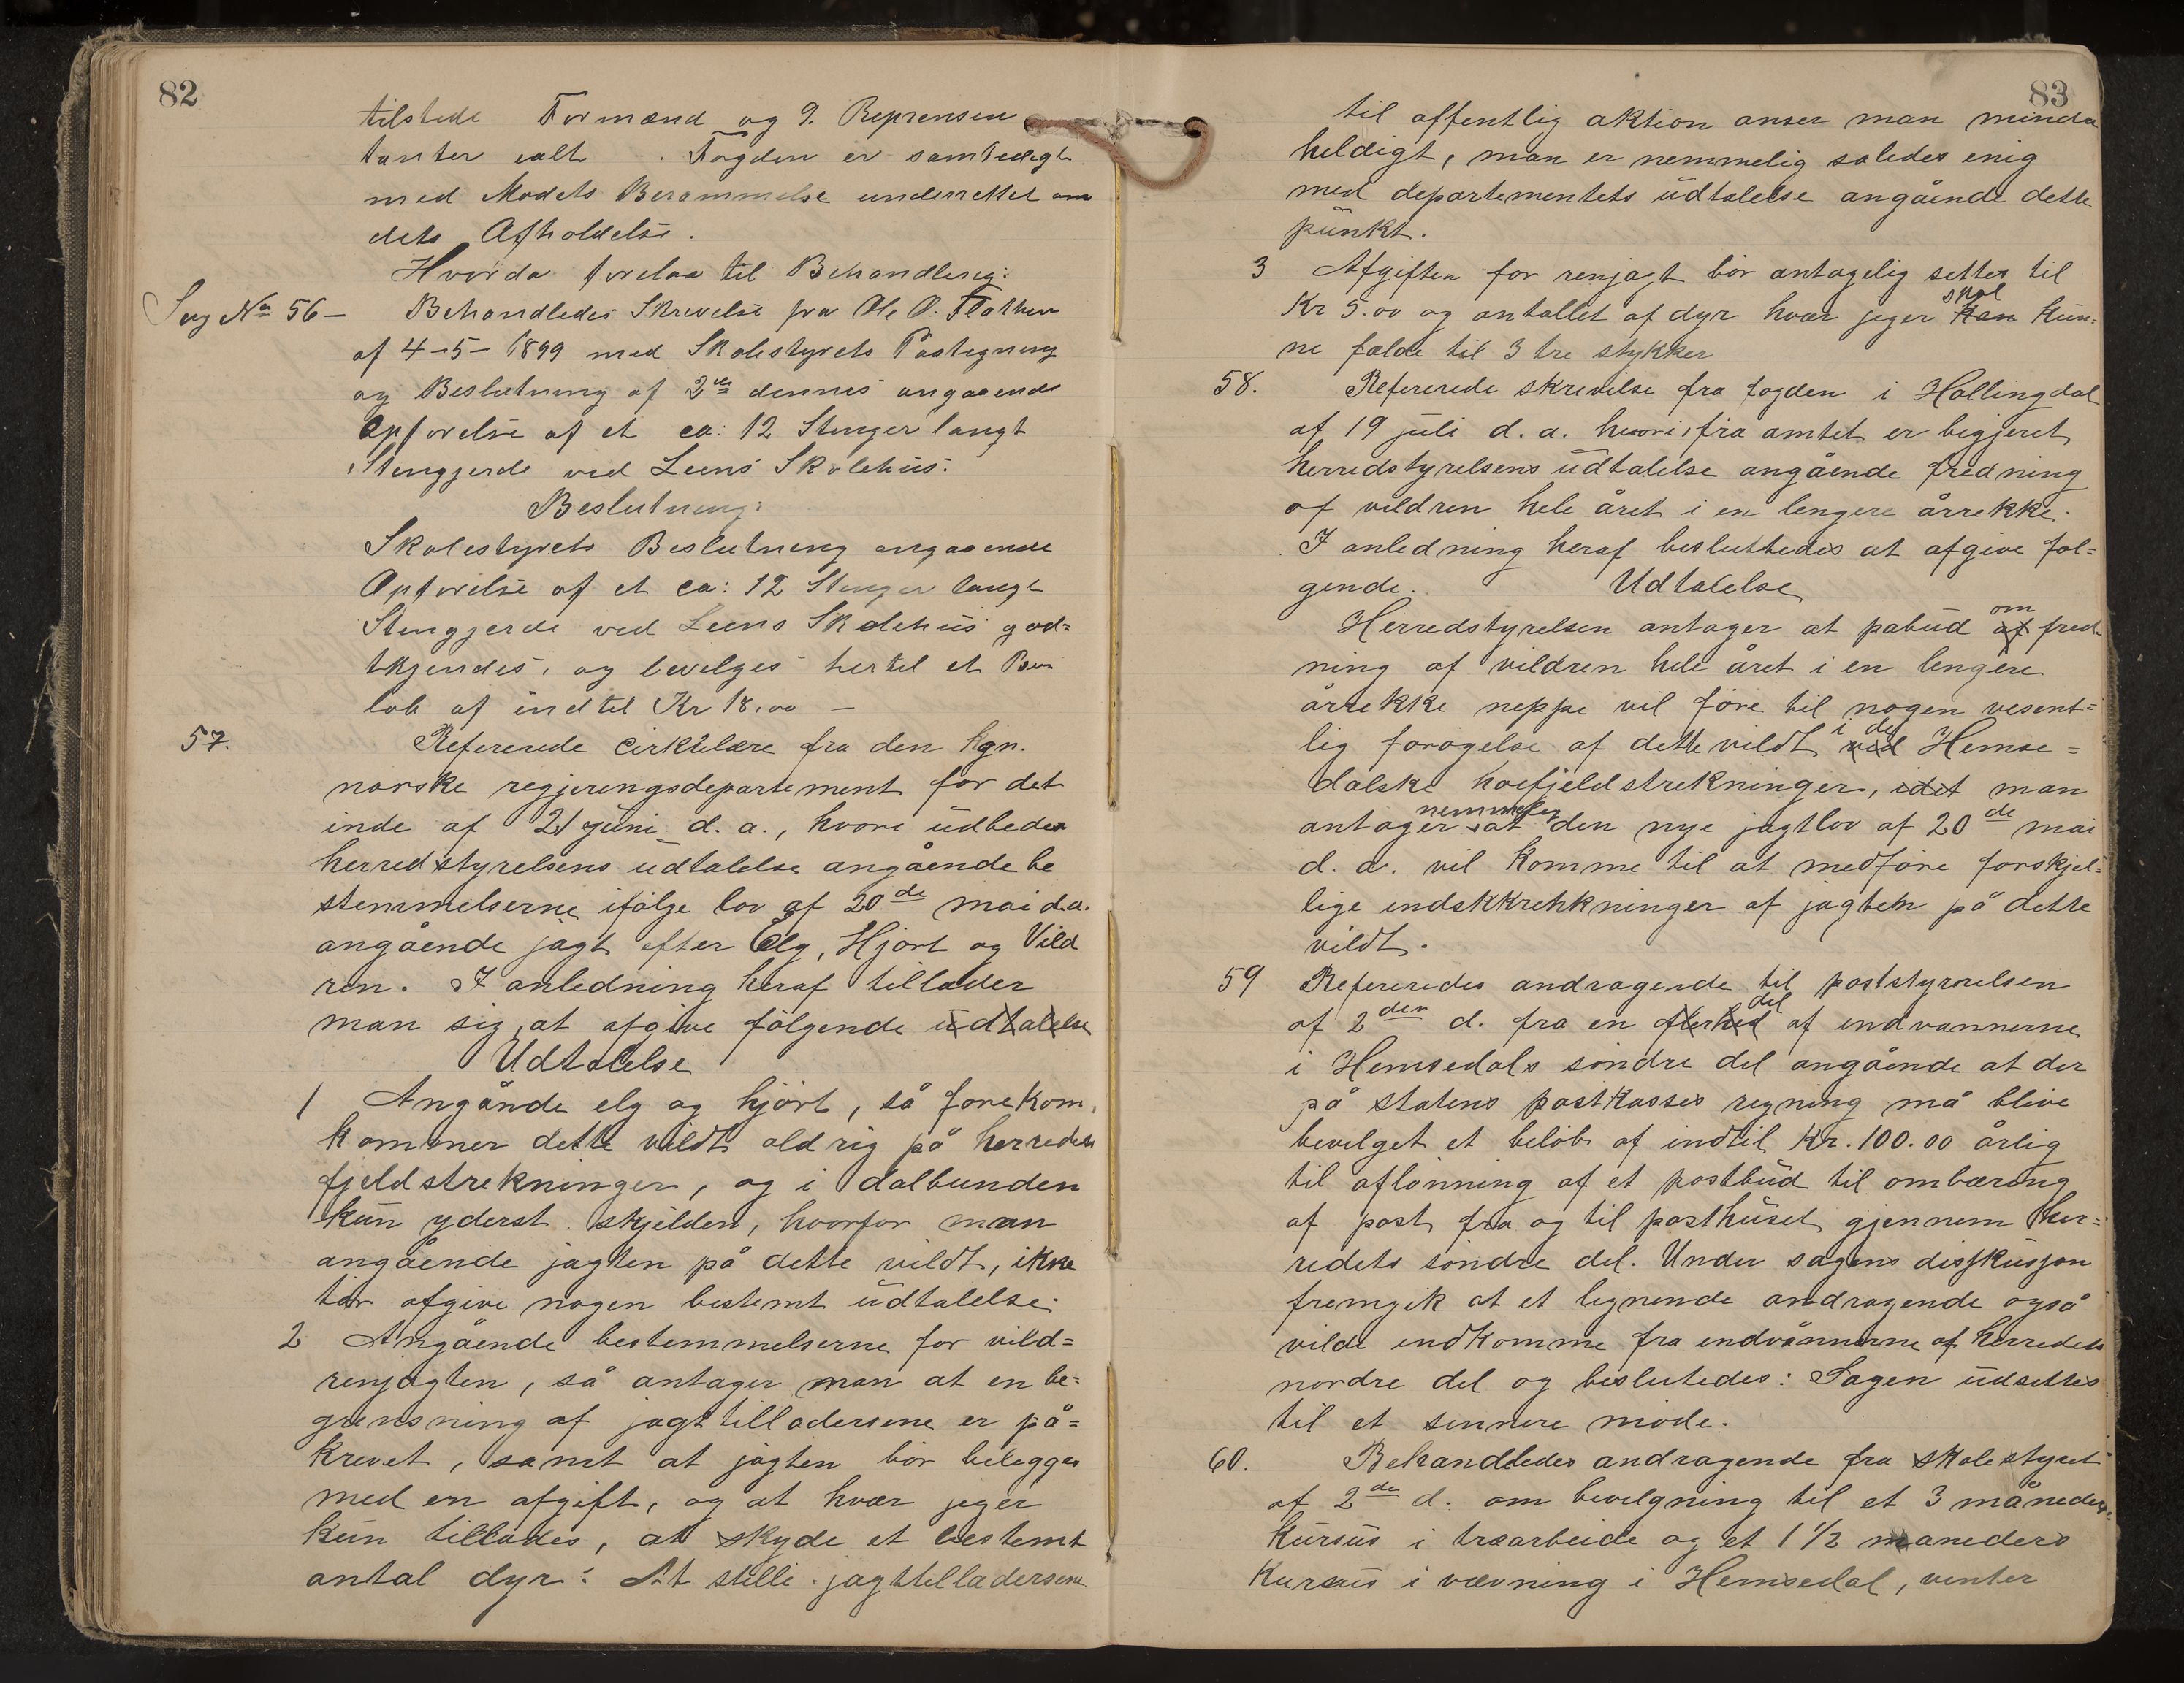 82
tilstede Formænd og 9. Reprensen
tanter ialt. Fogden er samtidigt
med Modets Berammelse underrettet om
dets Afholdelse.
Hvorda forelaa til Behandling:
Sag No 56 – Behandledes Skrivelse fra Ole O. Flathen
af 4-5-1899 med Skolestyrets Paategning
og Beslutning af 2de dennes angaaende
Opførelse af et ca: 12 Stenger langt
Stenggjerde ved Leens Skolehus.
Beslutning:
Skolestyrets Beslutning angaaende
Opførelse af et ca: 12 Stenger langt
Stenggjerde ved Leens Skolehus god=
tkjendes, og bevilges hertil et Be
löb af indtil Kr 18.00 –
57. Refererede cirkulære fra den kgn.
norske regjeringsdepartement for det
indre af 21 juni d.a., hvori udbedes
herredstyrelsens udtalelse angående be
stemmelserne ifölge lov af 20de mai d.a.
angående jagt efter Elg, Hjort og Vild
ren. I anledning heraf tillader
man sig, at afgive fölgende udtalelse
Udtalelse
1 Angånde elg og hjört, så forekom,
kommer dette vildt aldrig på herredets
fjeldstrekninger, og i dalbunden
kun yderst skjelden, hvorfor man
angående jagten på dette vildt, ikke
tör afgive nogen bestemt udtalelse.
2 Angående bestemmelserne for vild=
renjagten, så antager man at en be=
grensning af jagttilladersene er på=
krevet, samt at jagten bör belegges
med en afgift, og at hvær jeger
kun tillades, at skyde et bestemt
antal dyr. At stille jagttilladersene
83
til offentlig aktion anser man mindre
heldigt, man er nemmelig saledes enig
med departementets udtalelse angående dette
punkt.
3 Afgiften for renjagt bör antagelig settes til
Kr 5.00 og antallet af dyr hvær jeger kan skal kun=
ne fælde til 3 tre stykker
58. Refererede skrivelse fra fogden i Hallingdal
af 19 juli d.a. hvori fra amtet er begjeret
herredstyrelsens udtalelse angående fredning
af vildren hele året i en lengere årrekke.
I anledning heraf besluttedes at afgive föl=
gende. Udtalelse
Herredstyrelsen antager at pabud af om fred
ning af vildren hele året i en lengere
årrekke neppe vil före til nogen vesent=
lig forögelse af dette vildt ved i de Hemse=
dalske höefjeldstrekninger, idet man
antager nemmelig at den nye jagtlov af 20de mai
d.a. vil komme til at medföre forskjel=
lige indskkrehkninger af jagten på dette
vildt.
59 Refereredes andragende til poststyrrelsen
af 2den d. fra en flerhed del af indvannerne
i Hemsedals söndre del angående at der
på statens postkasses regning må blive
bevilget et belöb af indtil Kr. 100.00 årlig
til aflönning af et postbud til ombæring
af post fra og til posthuset gjennem her=
redets söndre del. Under sagens disjkusjon
fremgik at et lignende andragende også
vilde indkomme fra indvånnerne af herredets
nordre del og beslutedes: Sagen udsettes
til et sennere möde.
60. Behandledes andragende fra skolestyret
af 2de d. om bevilgning til et 3 måneders
kursus i træarbeide og et 1 1/2 maneders
kursus i vævning i Hemsedal, venter